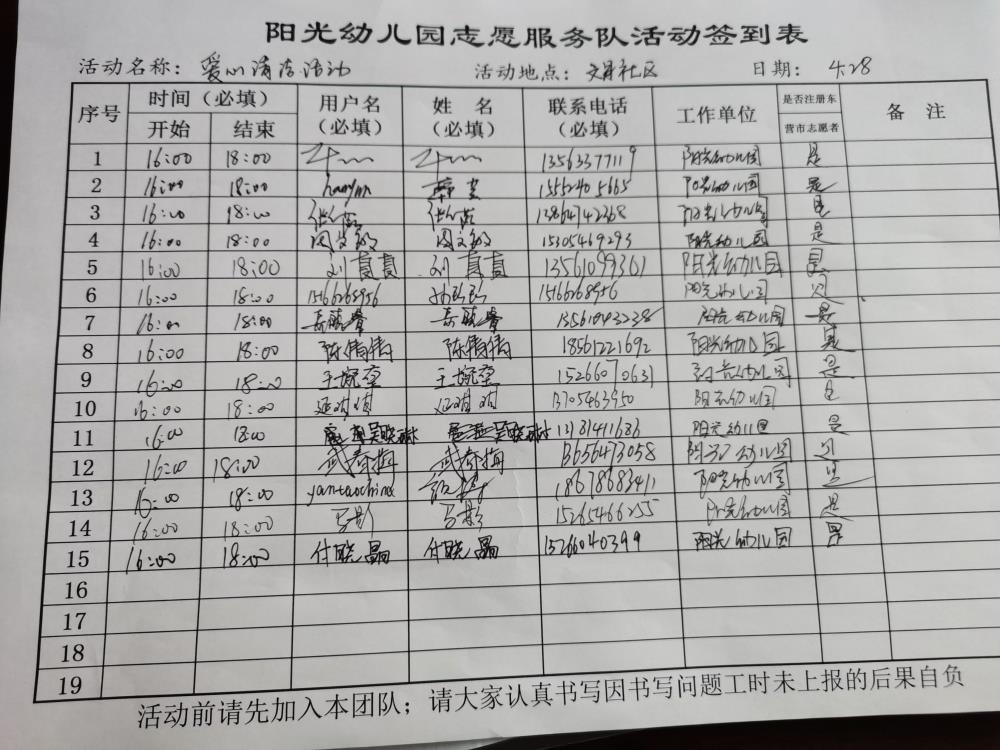 阳光幼儿园志愿服务队活动签到表
活动名称：爱心清洁活动 活动地点：社区 日期：4.28
序号 时间（必填） 用户名（必填） 姓名（必填） 联系电话（必填） 工作单位 是否注册东营市志愿者 备注
开始 结束
1 16:00 18:00 13563377119 阳光幼儿园 是
2 16:00 18:00 阳光幼儿园 是
3 16:00 18:00 13864742368 阳光幼儿园 是
4 16:00 18:00 周文敏 周文敏 15305469293 阳光幼儿园 是
5 16:00 18:00 刘真真 刘真真 13561099361 阳光幼儿园 是
6 16:00 18:00 15166268956 15166268956 阳光幼儿园 是
7 16:00 18:00 13561043238 阳光幼儿园 是
8 16:00 18:00 陈倩倩 陈倩倩 18561221692 阳光幼儿园 是
9 16:00 18:00 王婉莹 王婉莹 15266071063 阳光幼儿园 是
10 16:00 18:00 13705463950 阳光幼儿园 是
11 16:00 18:00 阳光幼儿园 是
12 16:00 18:00 武春梅 武春梅 13656473058 阳光幼儿园 是
13 16:00 18:00 18678683411 阳光幼儿园 是
14 16:00 18:00 马影 马影 15265466255 阳光幼儿园 是
15 16:00 18:00 付晓晶 付晓晶 15266040399 阳光幼儿园 是
16
17
18
19
活动前请先加入本团队；请大家认真书写因书写问题工时未上报的后果自负